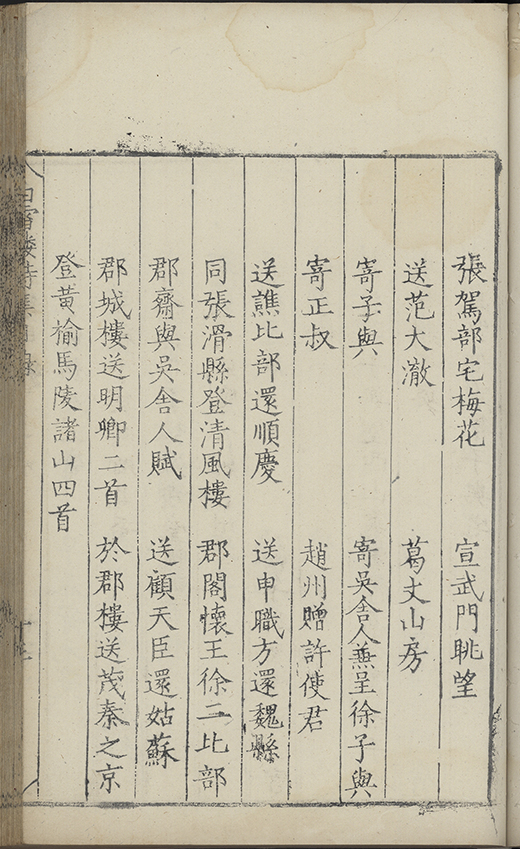 張駕部宅梅花　宣武門眺望
送范大澈　葛丈山房
寄子與　寄吳舍人兼呈徐子與
寄正叔　趙州贈許使君
送譙比部還順慶　送申職方還魏縣
同張滑縣登清風樓　郡閣懷王徐二比部
郡齋與吳舍人賦　送顧天臣還姑蘇
郡城樓送明卿二首　於郡樓送茂秦之京
登黃榆馬陵諸山四首
白雪樓詩集 目錄